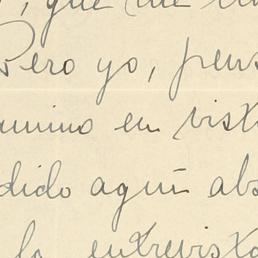 , que me
Pero yo, pens
amino en vist
dido aqui abs
la entrevista